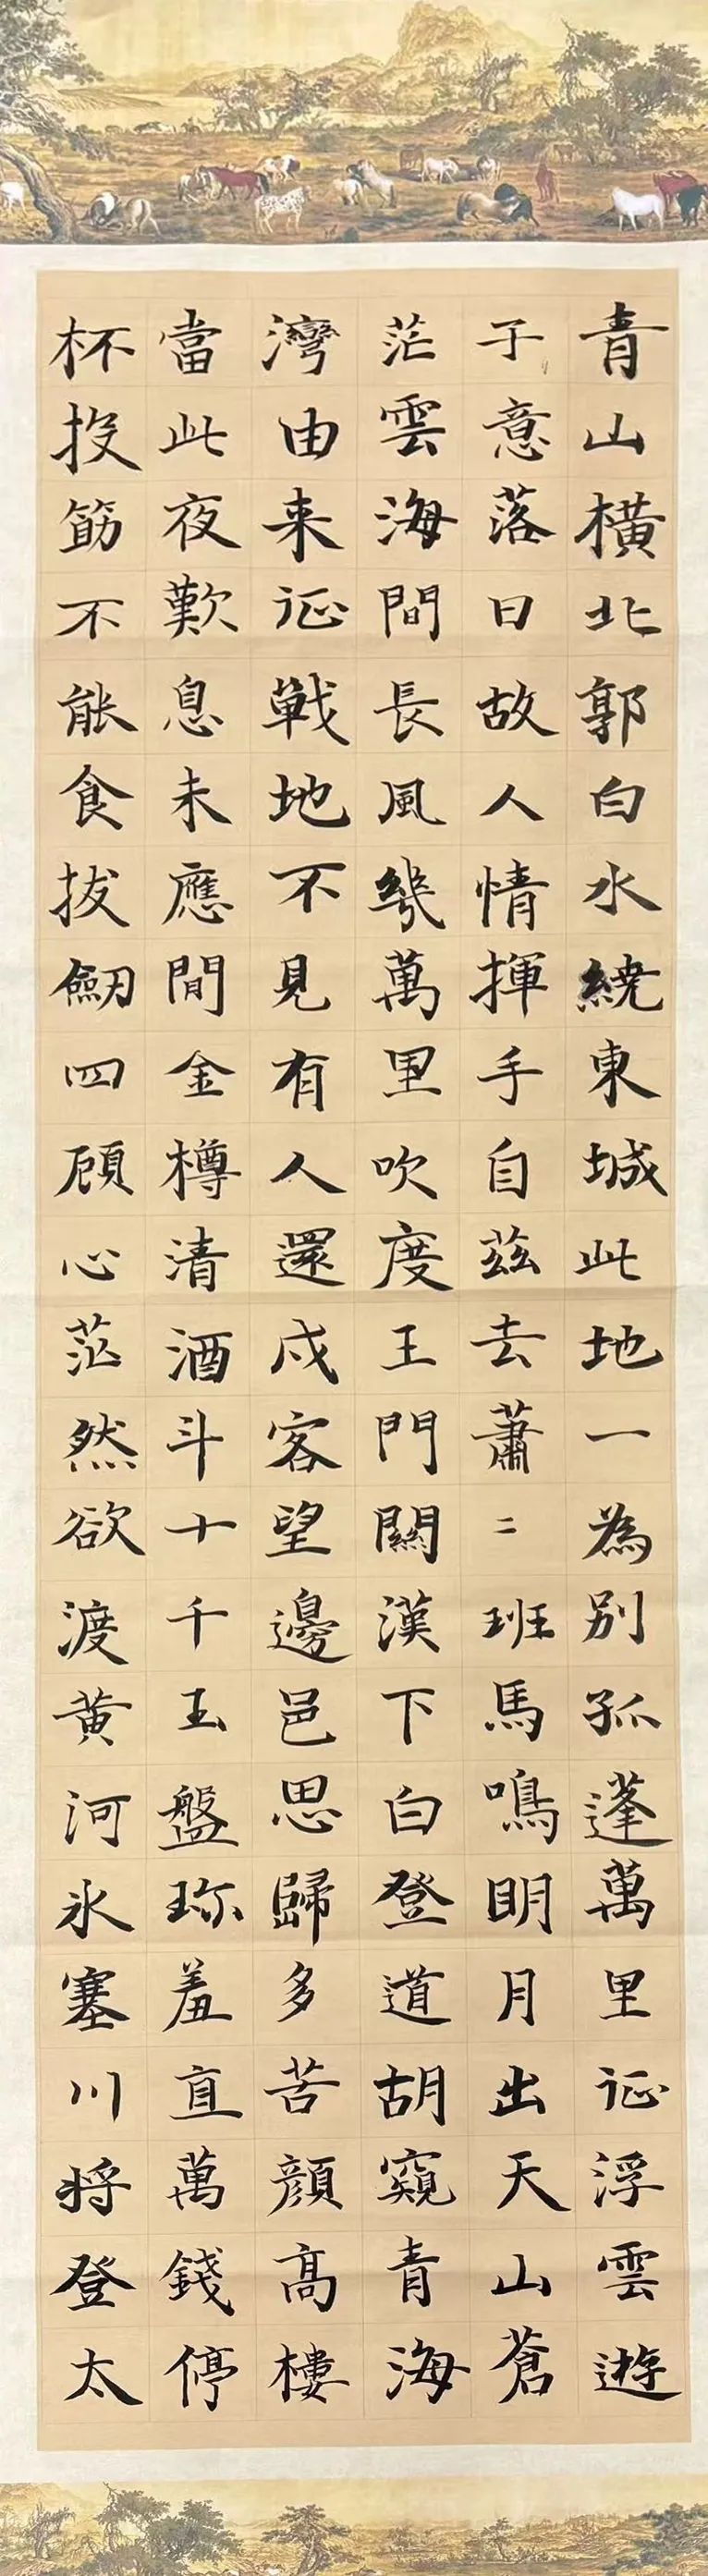 青山橫北郭白水繞東城此地一為別孤蓬萬里征浮雲遊
子意落日故人情揮手自茲去蕭二班馬鳴眀月出天山蒼
茫雲海間長風幾萬里吹度王門關漢下白登道胡窺青海
灣由来征戰地不見有人還戍客望邊邑思歸多苦顏高樓
當此夜歎息未應間金樽清酒斗十千玉盤珎羞直萬錢停
杯投筯不能食拔劒四顧心茫然欲渡黄河氷塞川将登太